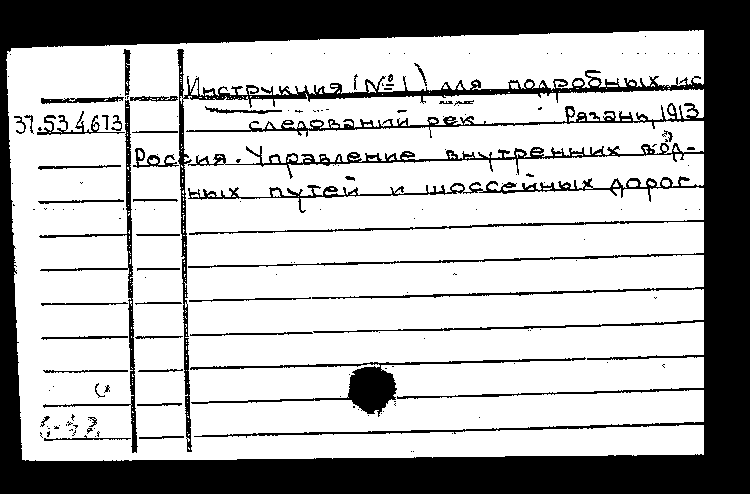 Инструкция (№ 1) для подробных ис
37.53.4.673 следований рек. Рязань, 1913
Россия. Управление внутренних вод-
ных путей и шоссейных дорог.